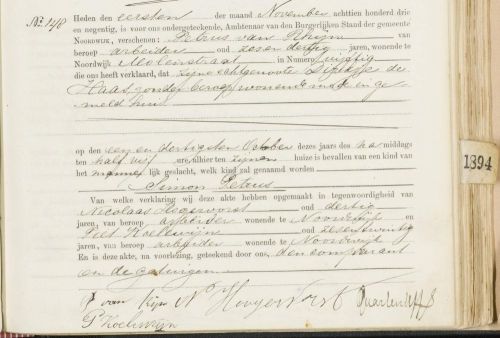 No. 148
Heden den eersten der maand November achttien honderd drie
en negentig, is voor ons ondergeteekende, Ambtenaar van den Burgerlijken Stand der gemeente
NOORDWIJK, verschenen: Petrus van Rhijn van
beroep arbeider oud zesen dertig jaren, wonende te
Noordwijk Molenstraat in Nomero vijftig
die ons heeft verklaard, dat zijne echtgenoote de
Haas, zonder beroep, wonende mede in ge-
meld huis
op den een en dertigsten October dezes jaars des na middags
ten half vijf ure, alhier ten zijnen huize is bevallen van een kind van
het mannelijk geslacht, welk kind zal genaamd worden
Simon Petrus
Van welke verklaring wij deze akte hebben opgemaakt in tegenwoordigheid van
Nicolaas Hogervorst oud dertig
jaren, van beroep arbeider wonende te Noordwijk en
Piet Koelewijn oud zesentwintig
jaren, van beroep arbeider wonende te Noordwijk
En is deze akte, na voorlezing, geteekend door ons, den comparant
en de getuigen
P van Rijn N Hoogervorst
P Koelewijn
1894